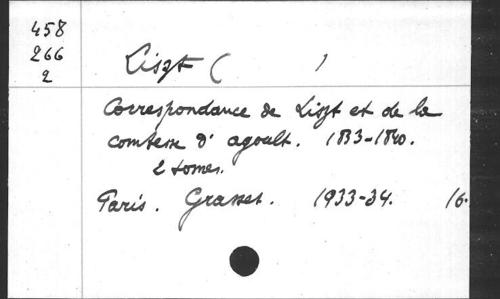 458
266
2
Liszt ( )
Correspondance de Liszt et de la
comtesse d' agoult. 1833-1840.
2 tomes.
Paris. Grasset. 1933-34. 16.